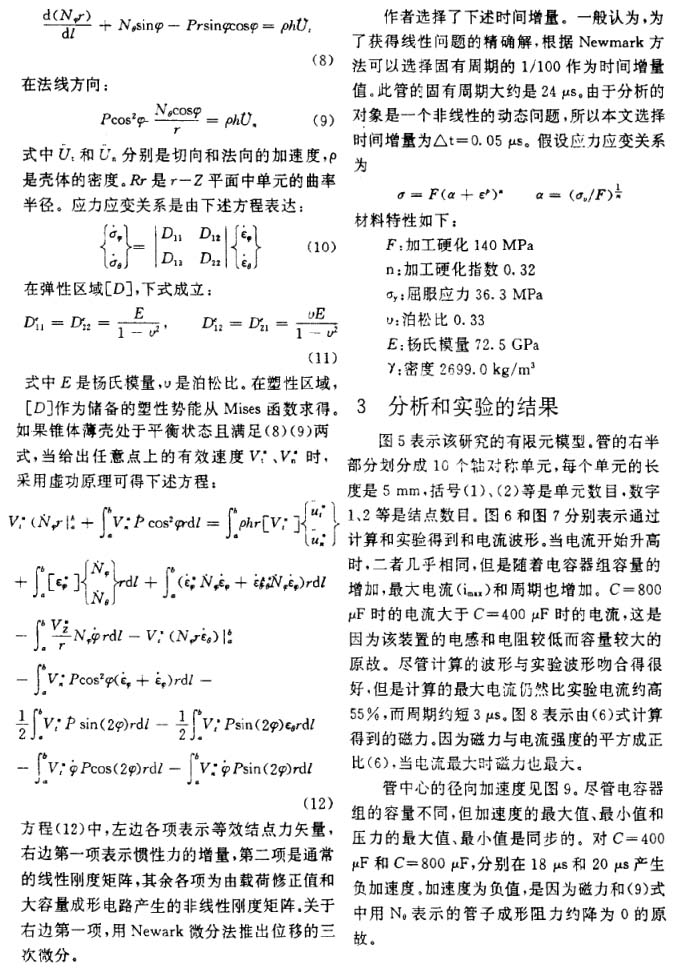 d(Nφr)/dl + Nθsinφ − Prsinφcosφ = ρhÜt
(8)
在法线方向:
Pcos²φ- Nθcosφ/r = ρhÜn (9)
式中Üt和Ün分别是切向和法向的加速度,ρ
是壳体的密度。Rr是r−Z平面中单元的曲率
半径。应力应变关系是由下述方程表达:
{σ̇φ σ̇θ} = |D11 D12 D12 D22| {ε̇φ ε̇θ} (10)
在弹性区域[D],下式成立:
D11 = D22 = E/(1 − υ²), D12 = D21 = υE/(1 − υ²)
(11)
式中E是杨氏模量,υ是泊松比。在塑性区域,
[D]作为储备的塑性势能从Mises函数求得。
如果锥体薄壳处于平衡状态且满足(8)(9)两
式,当给出任意点上的有效速度Vt*、Vn*时,
采用虚功原理可得下述方程:
Vt*(Ṅφr|ab + ∫ab Vn*Ṗcos²φrdl = ∫ab ρhr[Vt*]{ut* un*}
+ ∫ab[εφ*]{Ṅφ Ṅθ}rdl + ∫ab(ε̇φ*Ṅφε̇φ + ε̇θ*Ṅφε̇φ)rdl
− ∫ab V2*/r Nφφ̇rdl − Vt*(Nφrε̇θ)|ab
− ∫ab Vn*Pcos²φ(ε̇φ + ε̇φ)rdl −
1/2∫ab Vt*Ṗsin(2φ)rdl − 1/2∫ab Vt*Psin(2φ)εθrdl
− ∫ab Vt*φ̇Pcos(2φ)rdl − ∫ab Vn*φ̇Psin(2φ)rdl
(12)
方程(12)中,左边各项表示等效结点力矢量,
右边第一项表示惯性力的增量,第二项是通常
的线性刚度矩阵,其余各项为由载荷修正值和
大容量成形电路产生的非线性刚度矩阵。关于
右边第一项,用Newark微分法推出位移的三
次微分。
作者选择了下述时间增量。一般认为,为
了获得线性问题的精确解,根据Newmark方
法可以选择固有周期的1/100作为时间增量
值。此管的固有周期大约是24 μs。由于分析的
对象是一个非线性的动态问题,所以本文选择
时间增量为△t=0.05 μs。假设应力应变关系
为
σ = F(α + εᵖ)ⁿ α = (σy/F)^(1/n)
材料特性如下:
F:加工硬化140 MPa
n:加工硬化指数0.32
σy:屈服应力36.3 MPa
υ:泊松比0.33
E:杨氏模量72.5 GPa
γ:密度2699.0 kg/m³
3 分析和实验的结果
图5表示该研究的有限元模型。管的右半
部分划分成10个轴对称单元,每个单元的长
度是5 mm,括号(1)、(2)等是单元数目,数字
1、2等是结点数目。图6和图7分别表示通过
计算和实验得到和电流波形。当电流开始升高
时,二者几乎相同,但是随着电容器组容量的
增加,最大电流(imax)和周期也增加。C=800
μF时的电流大于C=400 μF时的电流,这是
因为该装置的电感和电阻较低而容量较大的
原故。尽管计算的波形与实验波形吻合得很
好,但是计算的最大电流仍然比实验电流约高
55%,而周期约短3 μs。图8表示由(6)式计算
得到的磁力。因为磁力与电流强度的平方成正
比(6),当电流最大时磁力也最大。
管中心的径向加速度见图9。尽管电容器
组的容量不同,但加速度的最大值、最小值和
压力的最大值、最小值是同步的。对C=400
μF和C=800 μF,分别在18 μs和20 μs产生
负加速度。加速度为负值,是因为磁力和(9)式
中用Nθ表示的管子成形阻力约降为0的原
故。